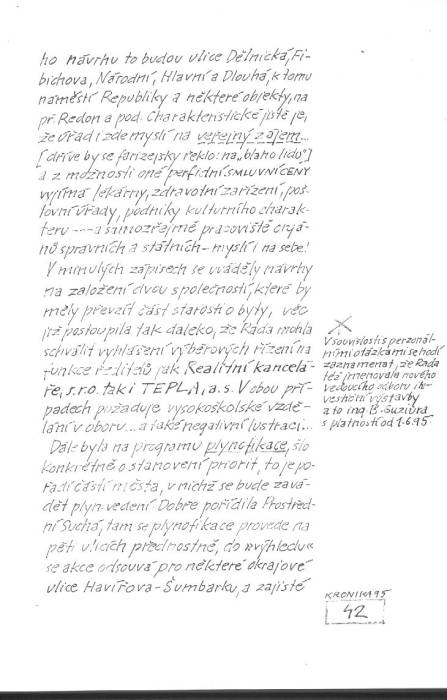 ho návrhu to budou ulice Dělnická, Fi-
bichova, Národní, Hlavní a Dlouhá, k tomu
náměstí Republiky a některé objekty, na
př. Redon a pod. Charakteristické jistě je,
že úřad i zde myslí na veřejný zájem...
[dříve by se farizejsky řeklo: na „blaho lidu"]
a z možnosti oné perfidní SMLUVNÍ CENY
vyjímá lékárny, zdravotní zařízení, poš-
tovní úřady, podniky kulturního charak-
teru --- a samozřejmě pracoviště orgá-
nů správních a státních - myslí i na sebe!
V minulých zápisech se uváděly návrhy
na založení dvou společností, které by
měly převzít část starosti o byty, věc
již postoupila tak daleko, že Rada mohla
schválit vyhlášení výběrových řízení na
funkce ředitelů jak Realitní kancelá-
ře, s.r.o. tak i TEPLA, a.s. V obou pří-
padech požaduje vysokoškolské vzdě-
lání v oboru... a také negativní lustraci...
Dále byla na programu plynofikace, šlo
konkrétně o stanovení priorit, to je po-
řadí částí města, v nichž se bude zavá-
dět plyn. vedení. Dobře pořídila Prostřed-
ní Suchá, tam se plynofikace provede na
pěti ulicích přednostně, do »výhledu«
se akce odsouvá pro některé okrajové
ulice Havířova-Šumbarku, a zajisté
V souvislosti s personál-
ními otázkami se hodí
zaznamenat, že Rada
též jmenovala nového
vedoucího odboru in-
vestiční výstavby
a to ing. B. Suziura
s platností od 1.6.95.
KRONIKA 95
42